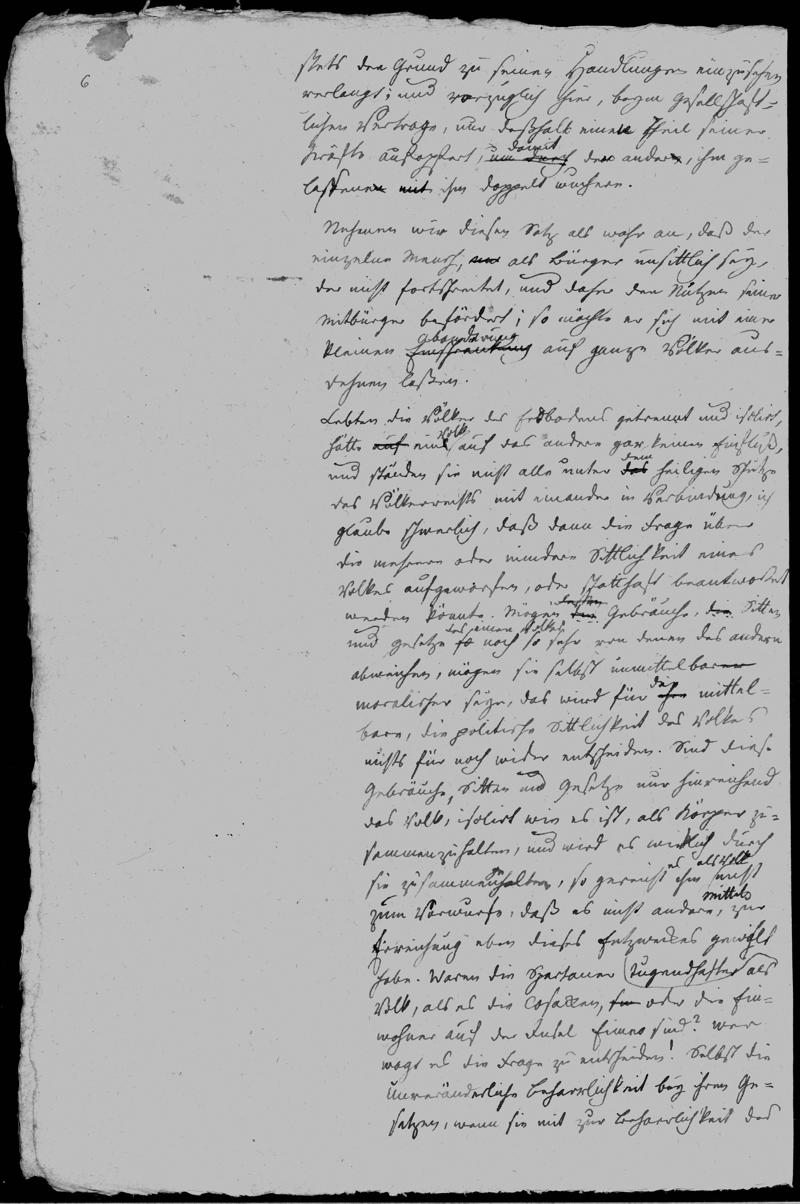 6
stets den Grund zu seinen Handlungen einzusehen
verlangt; und vorzüglich hier, beym gesellschaft-
lichen Vertrage, nur deßhalb einen Theil seiner
Kräfte aufopfert, um durch damit der andere, ihm ge-
lassene mit ihm doppelt wuchere.
Nehmen wir diesen Satz als wahr an, daß der
einzelne Mensch, als Bürger unsittlich sey,
der nicht fortschreitet, und daher den Nutzen seiner
Mitbürger befördert; so möchte er sich mit einer
kleinen Einschränkung Abänderung auf ganze Völker aus-
dehnen lassen.
Lebten die Völker des Erdbodens getrennt und isolirt,
hätte auf ein Volk auf das andere gar keinen Einfluß,
und ständen sie nicht alle unter das dem heiligen Schutze
des Völkerrechts mit einander in Verbindung, ich
glaube schwerlich, daß dann die Frage über
die mehrere oder mindere Sittlichkeit eines
Volkes aufgeworfen, oder statthaft beantwortet
werden könnte. Mögen die Gebräuche, die Sitten
und Gesetze des einen Volkes noch so sehr von denen des andern
abweichen, mögen sie selbst unmittelbar
moralischer seyn, das wird für die mittel-
bare, die politische Sittlichkeit des Volkes
nichts für noch wider entscheiden. Sind diese
Gebräuche, Sitten und Gesetze nur hinreichend
das Volk, isolirt wie es ist, als Körper zu-
sammenzuhalten, und wird es wirklich durch
sie zusammengehalten, so gereicht es ihm als Volk nicht
zum Vorwurfe, daß es nicht andere, mittels zur
Erreichung eben dieses Endzweckes gewählt
habe. Waren die Spartaner tugendhafter als
Volk, als es die Cosacken, oder die Ein-
wohner auf der Insel Eimeo sind? wer
wagt es die Frage zu entscheiden! Selbst die
unveränderliche Beharrlichkeit bey ihren Ge-
setzen, wenn sie mit zur Beharrlichkeit des